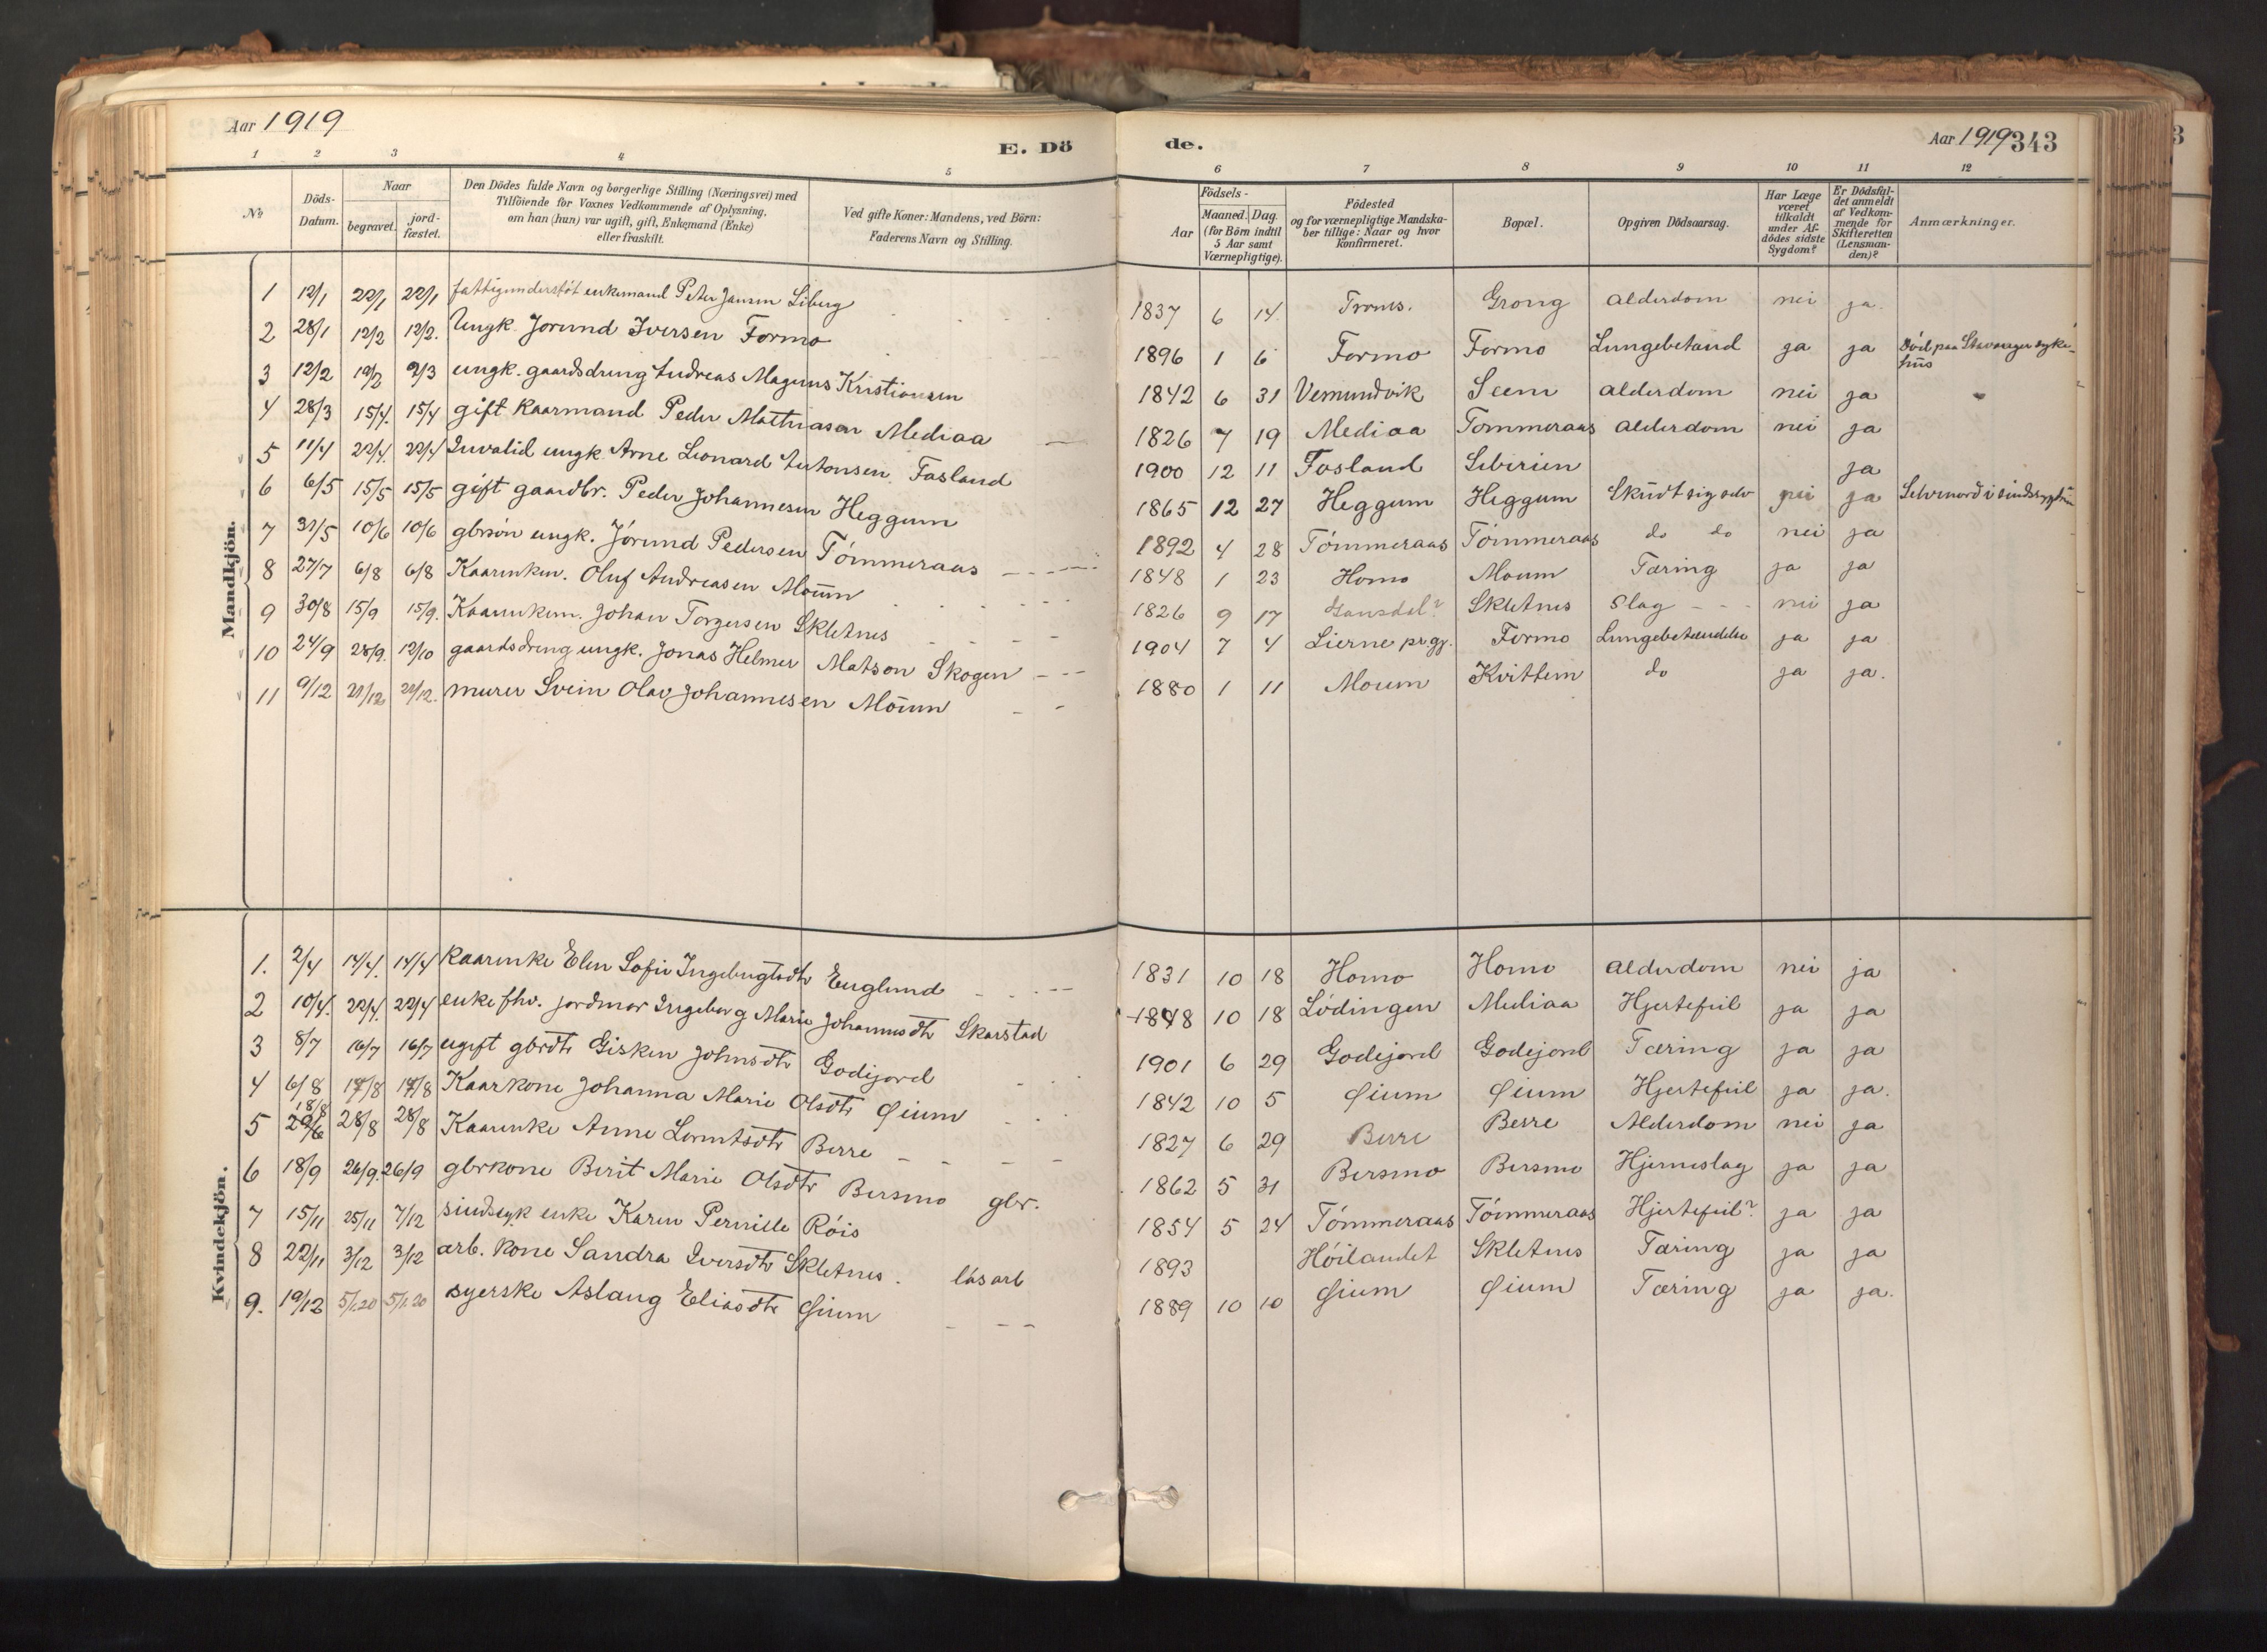 Aar 1919
E. Dö
de.
Aar 1919 343
1 2 3 4 5 6 7 8 9 10 11 12
№
Döds-Datum.
Naar
begravet.
jord-fæstet.
Den Dödes fulde Navn og borgerlige Stilling (Næringsvei) med
Tilföiende for Voxnes Vedkommende af Oplysning,
om han (hun) var ugift, gift, Enkemand (Enke)
eller fraskilt.
Ved gifte Koner: Mandens, ved Börn:
Faderens Navn og Stilling.
Födsels-
Aar
Maaned. Dag.
(for Börn indtil
5 Aar samt
Værnepligtige).
Födested
og for værnepligtige Mandska-
ber tillige: Naar og hvor
konfirmeret.
Bopæl.
Opgiven Dödsaarsag.
Har Læge
været
tilkaldt
under Af-
dödes sidste
Sygdom?
Er Dödsfal-
det anmeldt
af Vedkom-
mende for
Skifteretten
(Lensman-
den)?
Anmærkninger.
Mandkjön.
1 12/1 22/1 22/1 fattigunderstöt enkemand Peter Jansen Liberg 1837 6 14 Troms. Grong alderdom nei ja.
2 28/1 12/2 12/2. Ungk. Jorund Iversen Formo 1896 1 6 Formo Formo Lungebetænd ja ja Död paa Stavanger syke-
hus
3 12/2 19/2 2/3 ungk. gaardsdreng Andreas Magnus Kristiansen 1842 6 31 Vemundvik Seem alderdom nei ja
4 28/3 15/4. 15/4 gift kaarmand Peder Mathiasen Mediaa 1826 7 19 Mediaa Tømmeraas alderdom nei ja
5 11/4 22/4. 22/4 Invalid ungk. Arne Leonard Antonsen Fosland 1900 12 11 Fosland Sibirien ja
6 6/5 15/5 15/5 gift gaardbr. Peder Johannesen Heggum 1865 12 27 Heggum Heggum Skudt sig selv nei ja Selvmord i
7 31/5 10/6 10/6 gbrsön ungk. Jörund Pedersen Tömmeraas 1892 4 28 Tömmeraas Tömmeraas do do nei ja
8 27/7 6/8 6/8 Kaarenkem. Oluf Andreasen Moum 1848 1 23 Homo Moum Tæring ja ja
9 30/8 15/9 15/9. Kaarenkem. Johan Torgersen Skletnes 1826 9 17 Skletnes Slag nei ja
10 24/9 28/9. 12/10 gaardsdreng ungk. Jonas Helmer Matson Skogen 1904 7 4 Lierne prgj. Formo Lungebetændelse ja ja
11 9/12 21/12 21/12. murer Svein Olav Johannesen Moum 1880 1 11 Moum Kvittem do ja ja.
Kvindekjön.
1. 2/4 14/4. 14/4 Kaarenke Elen Sofie Ingebrigtsdtr Englund 1831 10 18 Homo Homo alderdom nei ja
2 10/4. 22/4. 22/4 enke fhv. jordmor Ingeborg Marie Johannesdtr Skarstad 1848 10 18 Lödingen Mediaa Hjertefeil ja ja
3 8/7 16/7 16/7 ugift gbrdtr Gisken Johnsdtr Godejord 1901 6 29 Godejord Godejord Tæring ja ja
4 6/8 17/8 17/8 Kaarkone Johanna Marie Olsdtr Øium 1842 10 5 Øium Øium Hjertefeil ja ja.
5 18/8 28/8 28/8 Kaarenke Anne Lorntsdtr Berre 1827 6 29 Berre Berre Alderdom nei ja
6 18/9 26/9. 26/9 gbrkone Berit Marie Olsdtr Bersmo gbr. 1862 5 31 Bersmo Bersmo Hjerneslag ja ja
7 15/11 25/11 7/12 sindssyk enke Karen Pernille Röis 1854 5 24 Tömmeraas Tömmeraas Hjertefeil? ja ja
8 22/11 3/12 3/12 arb. kone Sandra Iversdtr Skletnes. lösarb 1893 Höilandet Skletnes Tæring ja ja
9. 19/12 5/1.20 5/1.20 syerske Aslaug Eliasdtr Øium 1889 10 10 Øium Øium Tæring ja ja.